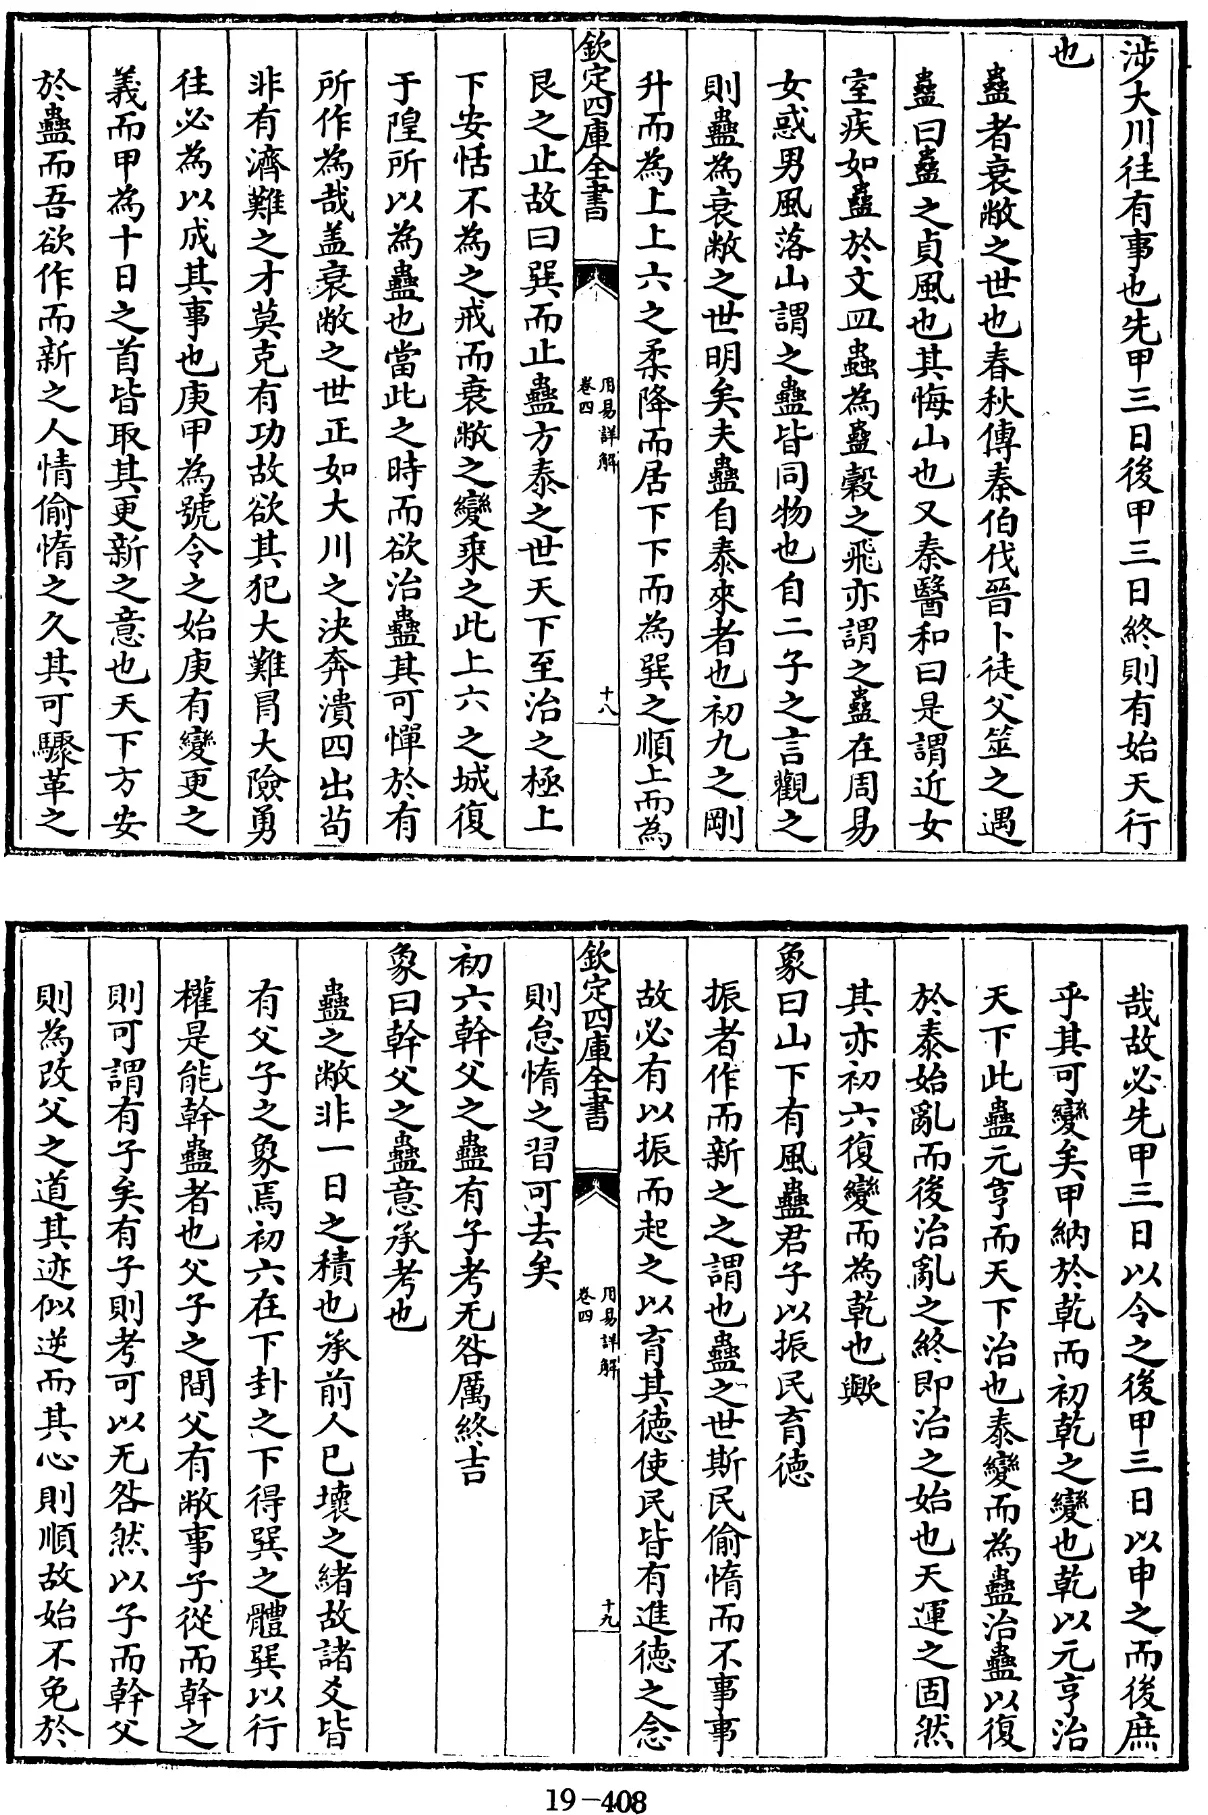 涉大川往有事也先甲三日後甲三日終則有始天行
也
蠱者衰敝之世也春秋傳秦伯伐晉卜徒父筮之遇
蠱曰蠱之貞風也其悔山也又秦醫和曰是謂近女
室疾如蠱於文皿蟲為蠱榖之飛亦謂之蠱在周易
女惑男風落山謂之蠱皆同物也自二子之言觀之
則蠱為衰敝之世明矣夫蠱自泰來者也初九之剛
升而為上上六之柔降而居下下而為巽之順上而為
欽定四庫全書
周易詳解
卷四
十八
艮之止故曰巽而止蠱方泰之世天下至治之極上
下安恬不為之戒而衰敝之變乘之此上六之城復
于隍所以為蠱也當此之時而欲治蠱其可憚於有
所作為哉盖衰敝之世正如大川之決奔潰四出茍
非有濟難之才莫克有功故欲其犯大難冒大險勇
往必為以成其事也庚甲為號令之始庚有變更之
義而甲為十日之首皆取其更新之意也天下方安
於蠱而吾欲作而新之人情偷惰之久其可驟革之
哉故必先甲三日以令之後甲三日以申之而後庶
乎其可變矣甲納於乾而初乾之變也乾以元亨治
天下此蠱元亨而天下治也泰變而為蠱治蠱以復
於泰始亂而後治亂之終即治之始也天運之固然
其亦初六復變而為乾也歟
象曰山下有風蠱君子以振民育德
振者作而新之之謂也蠱之世斯民偷惰而不事事
故必有以振而起之以育其德使民皆有進德之念
欽定四庫全書
周易詳解
卷四
十九
則怠惰之習可去矣
初六幹父之蠱有子考无咎厲終吉
象曰幹父之蠱意承考也
蠱之敝非一日之積也承前人已壞之緒故諸爻皆
有父子之象焉初六在下卦之下得巽之體巽以行
權是能幹蠱者也父子之間父有敝事子從而幹之
則可謂有子矣有子則考可以无咎然以子而幹父
則為改父之道其迹似逆而其心則順故始不免於
19-408